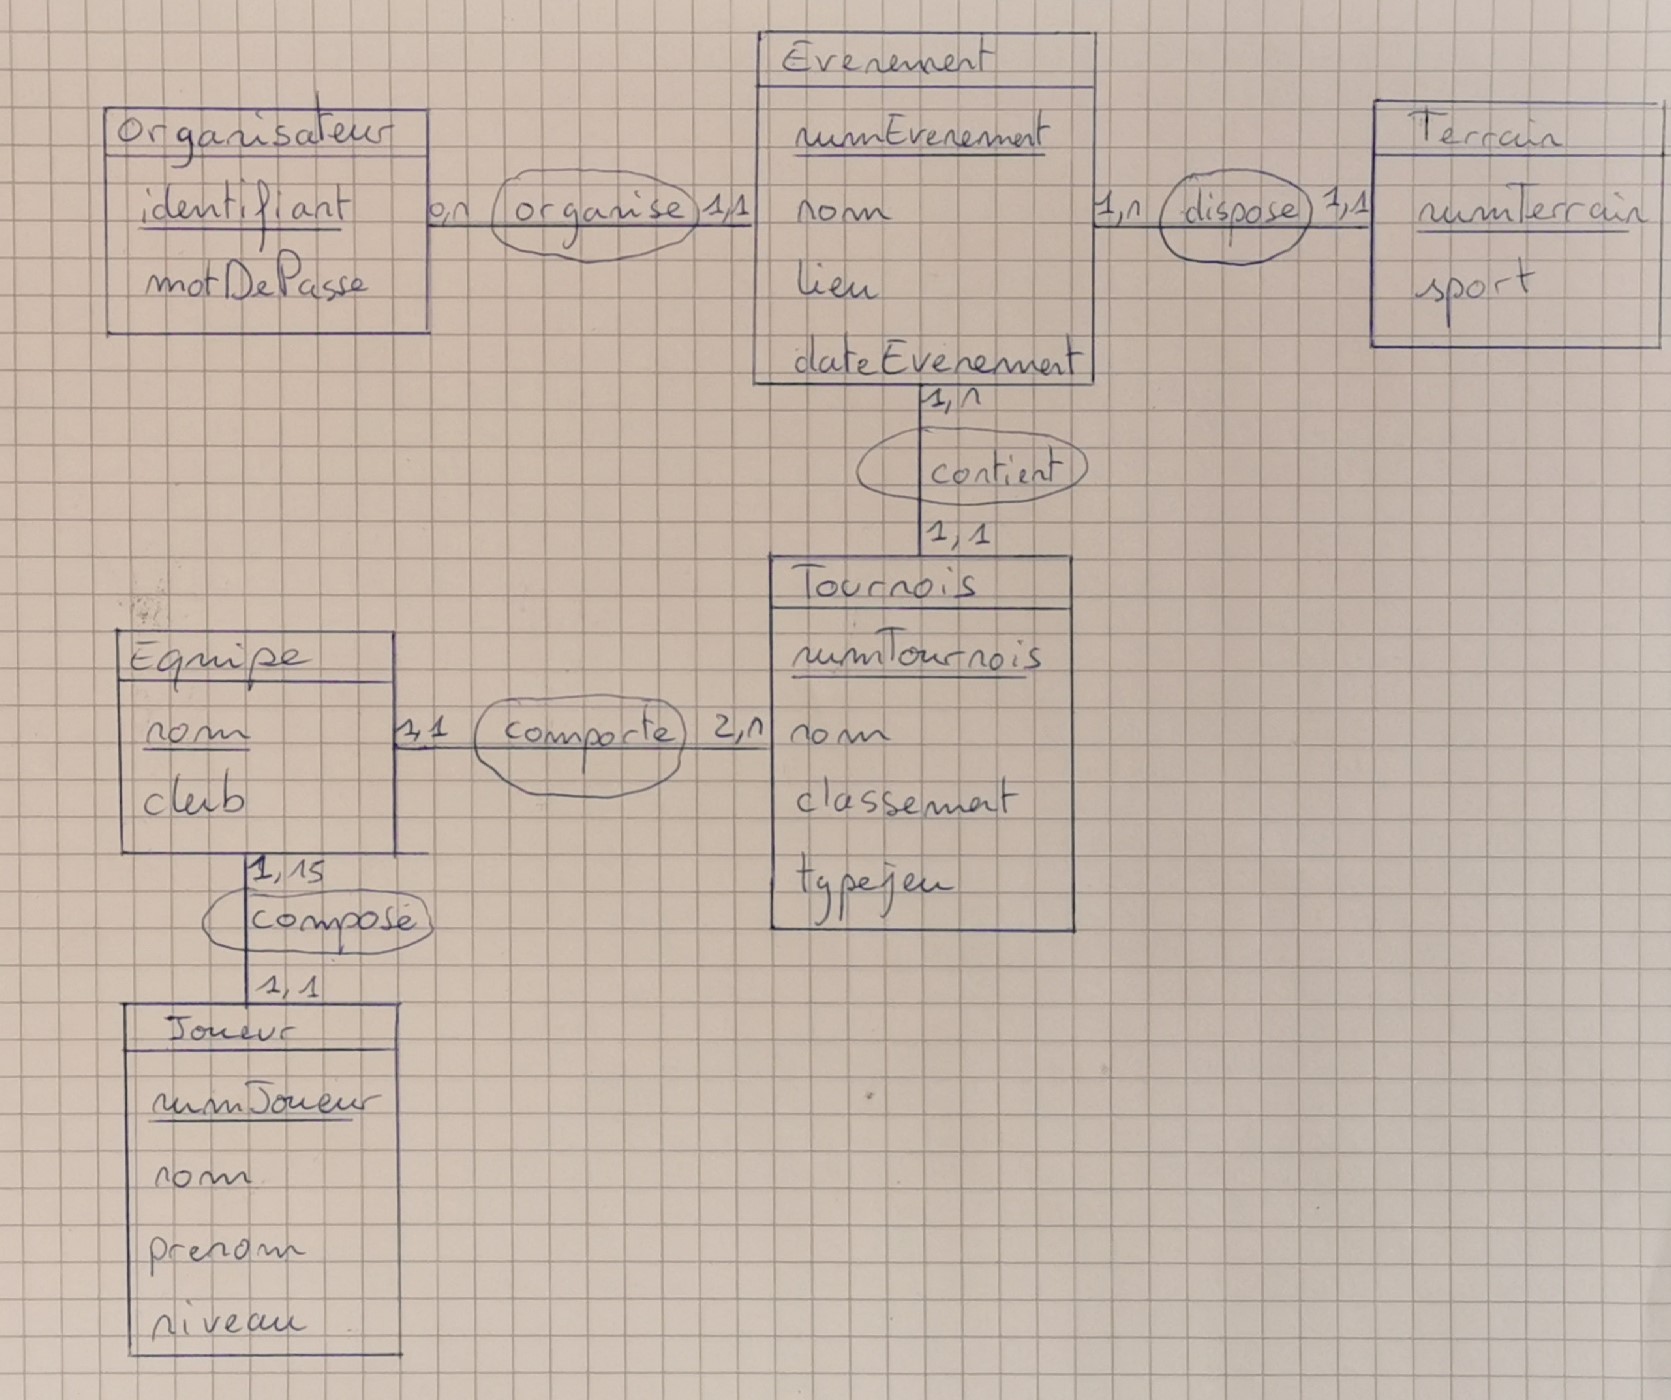 Organisateur
identifiant
motDePasse
0,n
organise
1,1
Evenement
numEvenement
nom
lieu
dateEvenement
1,n
dispose
1,1
Terrain
numTerrain
sport
1,n
contient
1,1
Tournois
numTournois
nom
classement
typejeu
Equipe
nom
club
1,1
comporte
2,n
1,15
composé
1,1
Joueur
numJoueur
nom
prenom
niveau